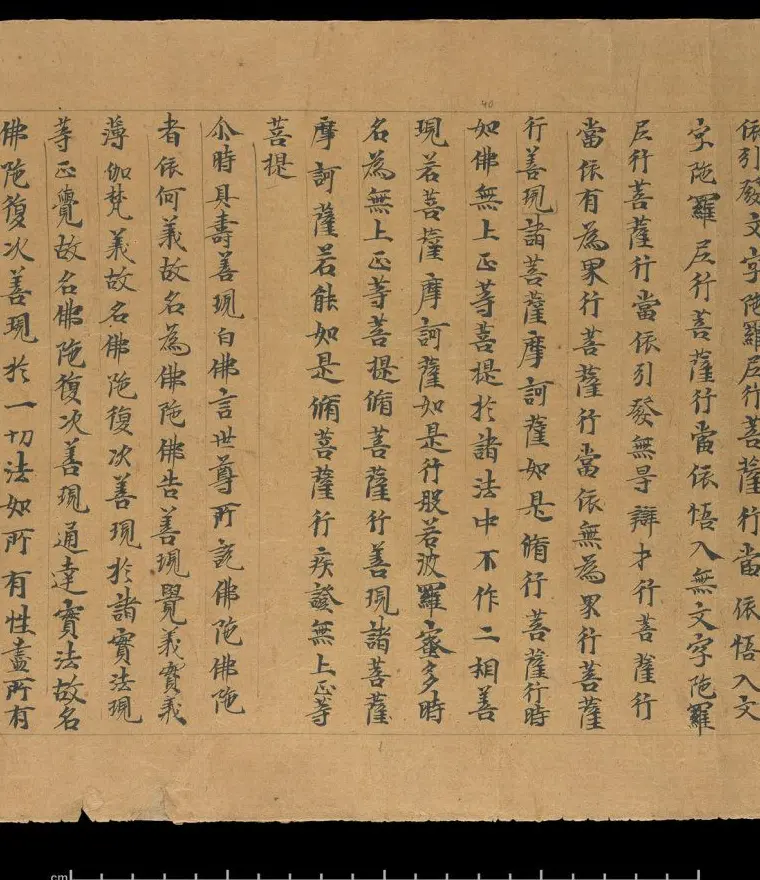 40
依引發文字陀羅尼行菩薩行當依悟入文
字陀羅尼行菩薩行當依悟入無文字陀羅
尼行菩薩行當依引發無㝵辯才行菩薩行
當依有為界行菩薩行當依無為界行菩薩
行善現諸菩薩摩訶薩如是脩行菩薩行時
如佛無上正等菩提於諸法中不作二相善
現若菩薩摩訶薩如是行般若波羅蜜多時
名為無上正等菩提脩菩薩行善現諸菩薩
摩訶薩若能如是脩菩薩行疾證無上正等
菩提
尒時具壽善現白佛言世尊所說佛陀佛陀
者依何義故名為佛陀佛告善現覺義實義
薄伽梵義故名佛陀復次善現於諸實法現
等正覺故名佛陀復次善現通達實法故名
佛陀復次善現於一切法如所有性盡所有
cm